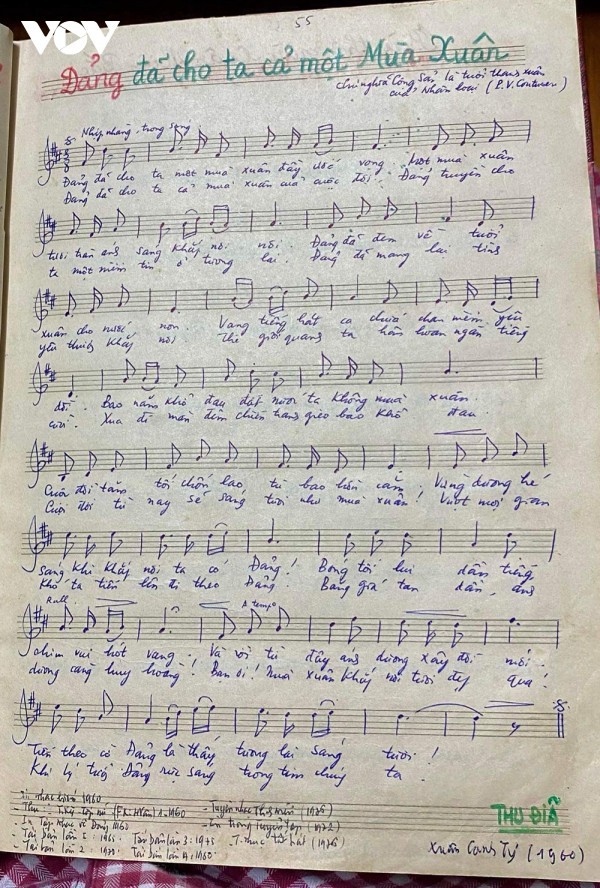 VOV
55
Đảng đã cho ta cả một Mùa Xuân
Chủ nghĩa Cộng Sản là tuổi thanh xuân
của Nhân loại (P.V. Couturier)
Nhịp nhàng, trong sáng
Đảng đã cho ta một mùa xuân đầy ước vọng. Một mùa xuân
Đảng đã cho ta cả mùa xuân của cuộc đời. Đảng truyền cho
tươi tràn ánh sáng khắp nơi nơi. Đảng đã đem về tuổi
ta một niềm tin ở tương lai. Đảng đã mang lại tiếng
xuân cho nước non. Vang tiếng hát ca chứa chan niềm yêu
yêu thương khắp nơi. Thế giới quanh ta hân hoan ngàn tiếng
đời. Bao năm khổ đau đất nước ta không mùa xuân.
cười. Xua đi màn đêm chiến tranh gieo bao khổ đau.
Cuộc đời tăm tối chốn lao tù bao hờn căm. Vừng dương hé
Cuộc đời từ nay sẽ sáng tươi như mùa xuân! Vượt mọi gian
sáng khi khắp nơi ta có Đảng! Bóng tối lui dần tiếng
khó ta tiến lên đi theo Đảng. Băng giá tan dần, ánh
Rall A tempo
chim vui hót vang. Và với từ đây ánh dương xây đời mới.
dương càng huy hoàng! Bạn ơi! Mùa xuân khắp nơi tươi đẹp quá!
Tiến theo cờ Đảng là thấy tương lai sáng tươi!
Khi lý tưởng Đảng rực sáng trong tim chúng ta.
1960
- Tuyển nhạc (1976)
- In trong tuyển tập (1972)
- Tái bản lần 1: 1965 Tái bản lần 3: 1973
- Tái bản lần 2:
THU ĐĨA
Xuân Canh Tý (1960)